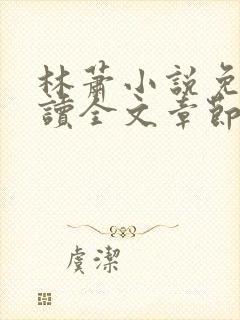 林蕭小說免
讀全文章節
虞潔